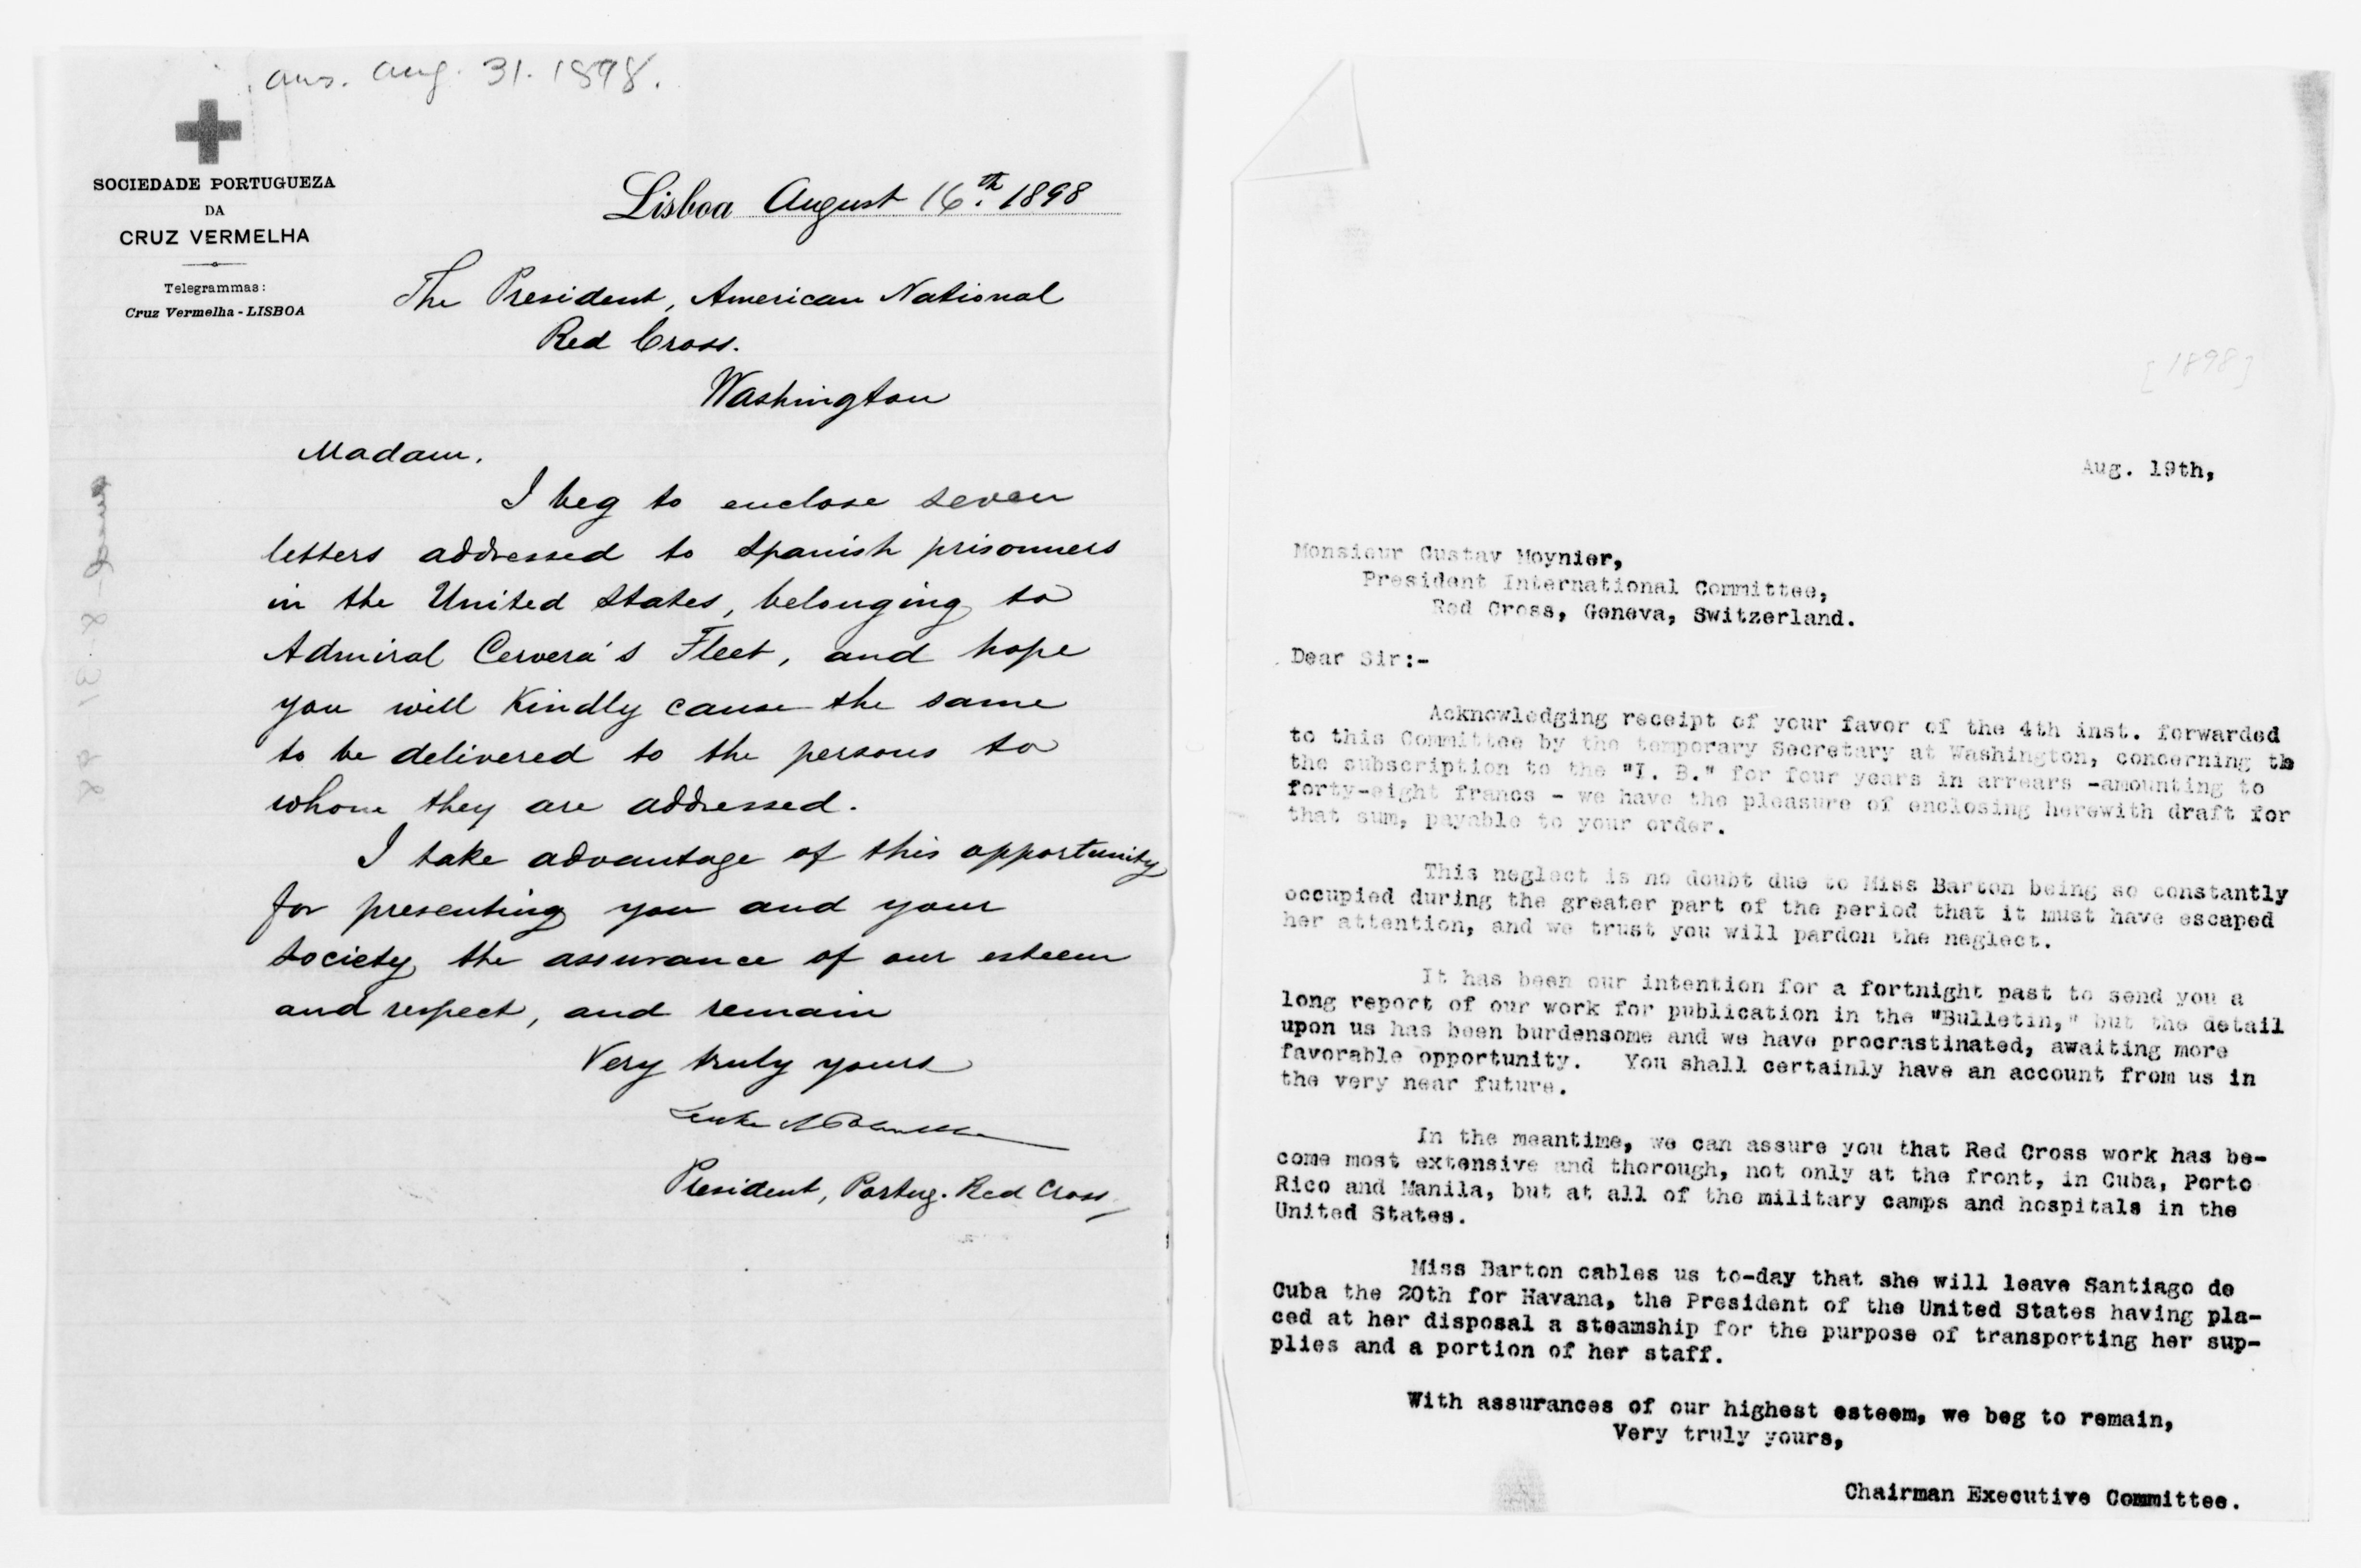 ans. Aug. 31. 1898.
SOCIEDADE PORTUGUEZA
DA
CRUZ VERMELHA
Telegrammas:
Cruz Vermelha - LISBOA
Lisboa August 16th. 1898
The President, American National
Red Cross.
Washington
Madam,
I beg to enclose seven
letters addressed to Spanish prisonners
in the United States, belonging to
Admiral Cervera's Fleet, and hope
you will Kindly cause the same
to be delivered to the persons to
whom they are addressed.
I take advantage of this opportunity
for presenting you and your
Society the assurance of our esteem
and respect, and remain
Very truly yours
President, Portug. Red Cross
[1898]
Aug. 19th,
Monsieur Gustav Moynier,
President International Committee,
Red Cross, Geneva, Switzerland.
Dear Sir:-
Acknowledging receipt of your favor of the 4th inst. forwarded
to this Committee by the temporary Secretary at Washington, concerning th
the subscription to the "I. B." for four years in arrears -amounting to
forty-eight francs - we have the pleasure of enclosing herewith draft for
that sum, payable to your order.
This neglect is no doubt due to Miss Barton being so constantly
occupied during the greater part of the period that it must have escaped
her attention, and we trust you will pardon the neglect.
It has been our intention for a fortnight past to send you a
long report of our work for publication in the "Bulletin," but the detail
upon us has been burdensome and we have procrastinated, awaiting more
favorable opportunity. You shall certainly have an account from us in
the very near future.
In the meantime, we can assure you that Red Cross work has be-
come most extensive and thorough, not only at the front, in Cuba, Porto
Rico and Manila, but at all of the military camps and hospitals in the
United States.
Miss Barton cables us to-day that she will leave Santiago de
Cuba the 20th for Havana, the President of the United States having pla-
ced at her disposal a steamship for the purpose of transporting her sup-
plies and a portion of her staff.
With assurances of our highest esteem, we beg to remain,
Very truly yours,
Chairman Executive Committee.